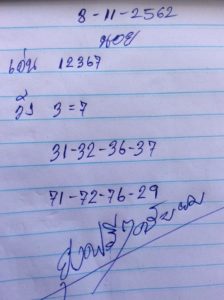 8-11-2562
นอย
เด่น 12367
วิ่ง 3=7
31-32-36-37
71-72-76-29